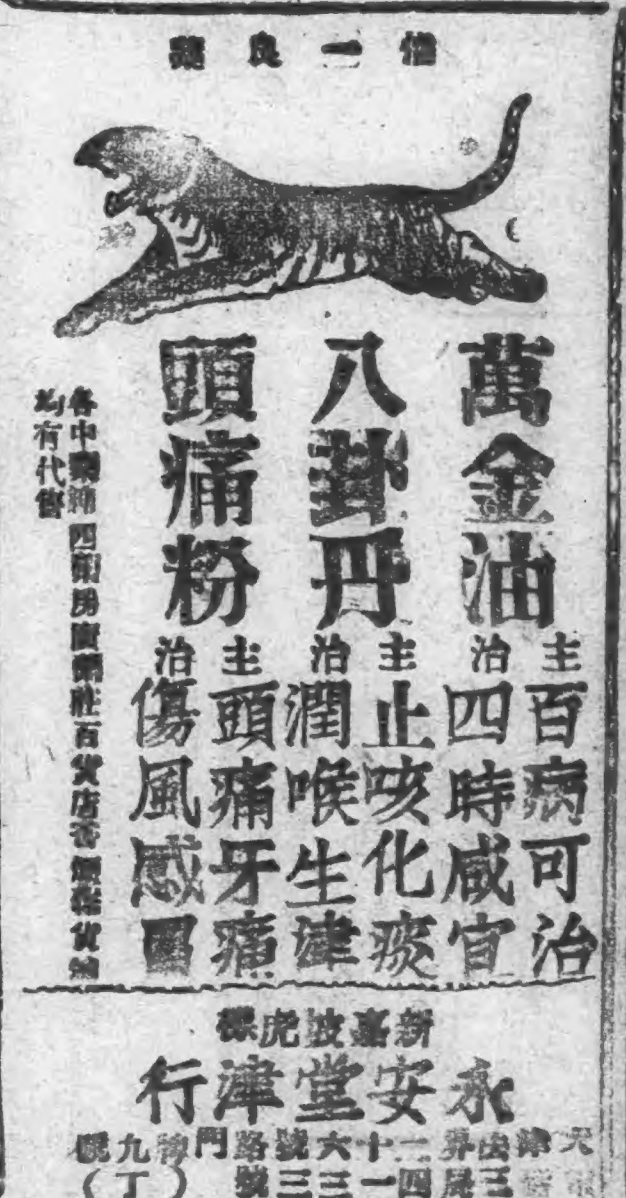 惟一良藥
萬金油
主治
百病可治
四時咸宜
八卦丹
主治
止咳化痰
潤喉生津
頭痛粉
主治
頭痛牙痛
傷風感冒
各中藥舖西藥房廣 莊百貨店 雜貨舖
均有代售
新嘉坡虎標
永安堂津行
天津法界二十六號路門牌九號
三局四一三三號（丁）